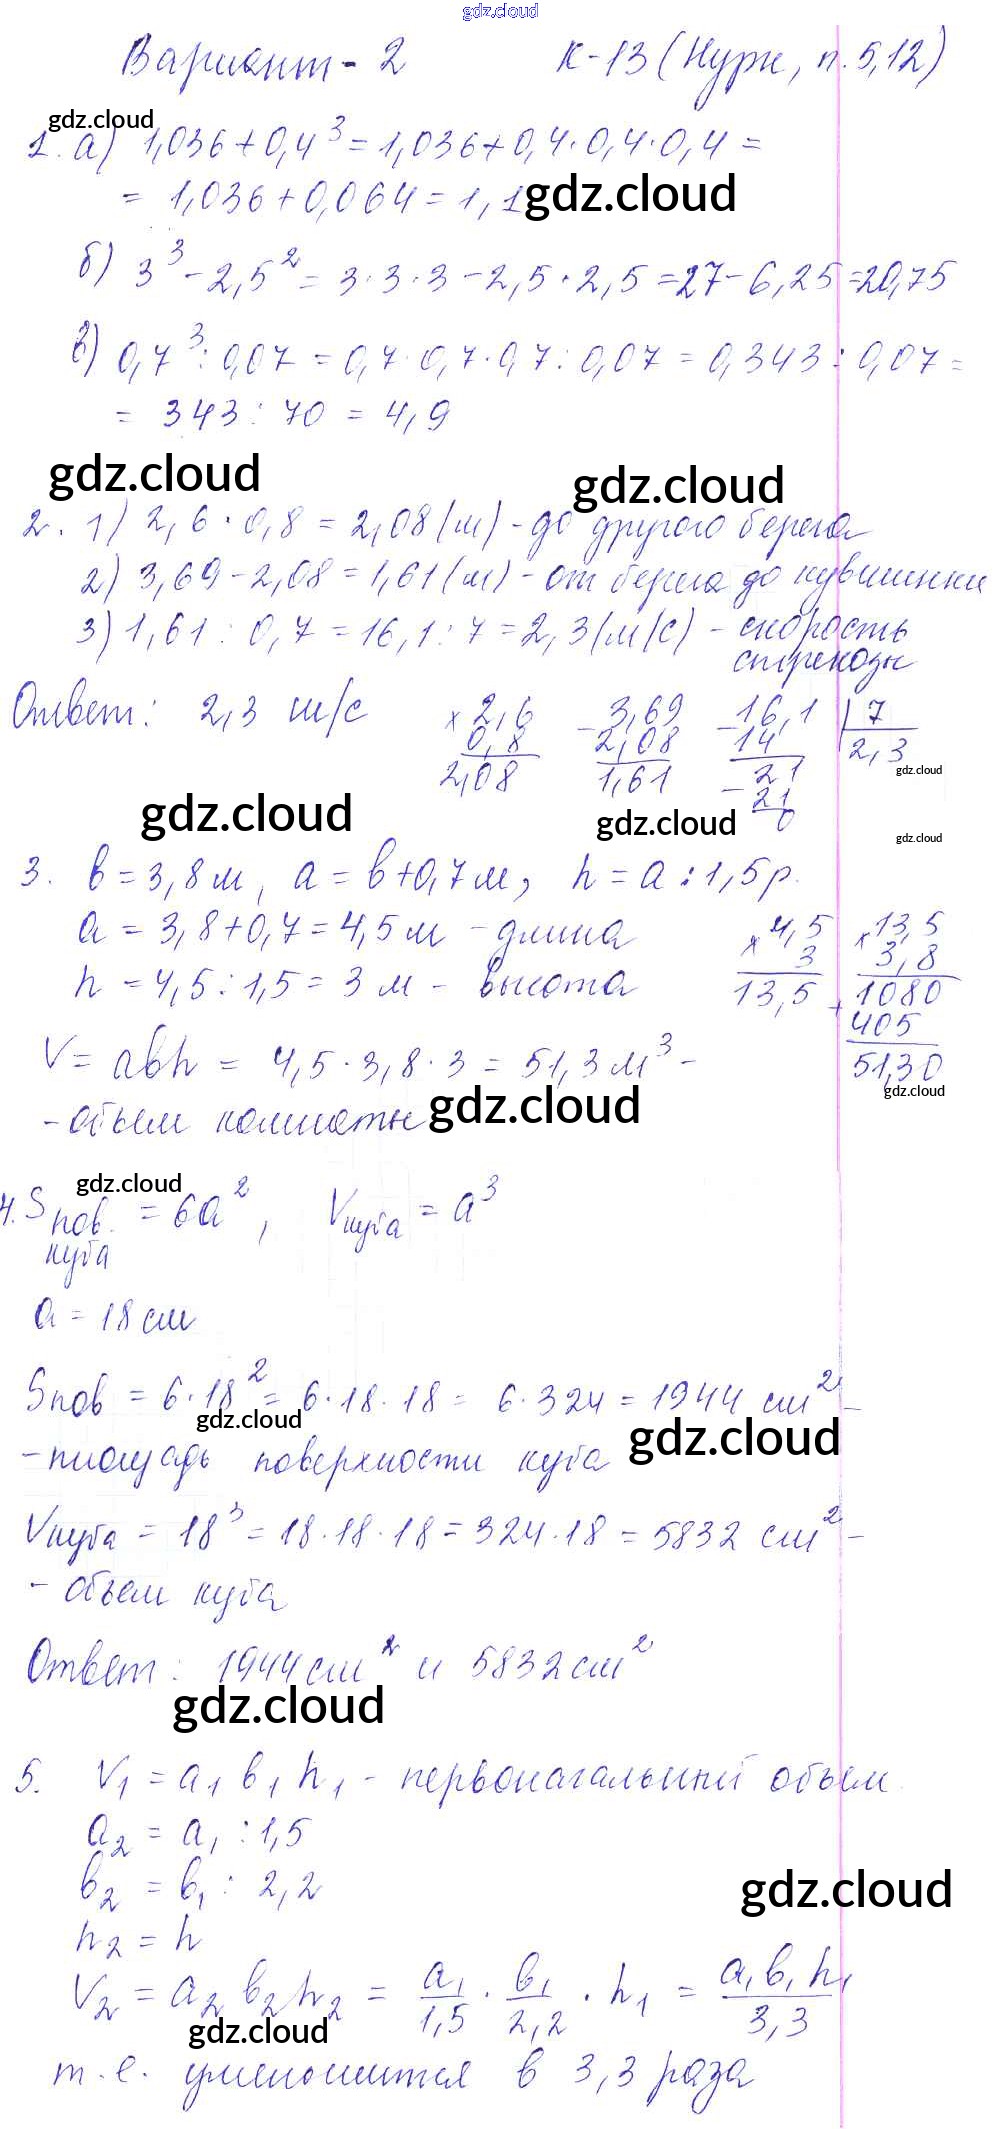 gdz.cloud
Вариант-2 К-13 (Нурк, п. 5,12)
gdz.cloud
1. а) 1,036+0,4³=1,036+0,4·0,4·0,4=
= 1,036+0,064=1,1
gdz.cloud
б) 3³-2,5²=3·3·3-2,5·2,5=27-6,25=20,75
в) 0,7³:0,07=0,7·0,7·0,7:0,07=0,343:0,07=
= 343:70=4,9
gdz.cloud gdz.cloud
2. 1) 2,6·0,8=2,08(м)-до другого берега
2) 3,69-2,08=1,61(м)-от берега до кувшинки
3) 1,61:0,7=16,1:7=2,3(м/с)-скорость
стрекозы
Ответ: 2,3 м/с
×2,6 -3,69 -16,1 | 7
0,8 2,08 14 2,3
2,08 1,61 -21
21
0
gdz.cloud
gdz.cloud gdz.cloud
gdz.cloud
3. в=3,8м, а=в+0,7м, h=а:1,5р.
а=3,8+0,7=4,5м -длина
h=4,5:1,5=3 м - высота
×4,5 ×13,5
3 3,8
13,5 +1080
405
51,30
V=авh=4,5·3,8·3=51,3м³-
-объем комнаты
gdz.cloud gdz.cloud
gdz.cloud
4. Sпов. куба=6а², Vкуба=а³
а=18см
Sпов=6·18²=6·18·18=6·324=1944 см²-
gdz.cloud gdz.cloud
-площадь поверхности куба
Vкуба=18³=18·18·18=324·18=5832 см²-
- объем куба
Ответ: 1944см² и 5832см²
gdz.cloud
5. V₁=а₁в₁h₁-первоначальный объем.
а₂=а₁:1,5
в₂=в₁:2,2
gdz.cloud
h₂=h
V₂=а₂в₂h₂=а₁/1,5·в₁/2,2·h₁=а₁в₁h₁/3,3
gdz.cloud
т.е. уменьшится в 3,3 раза